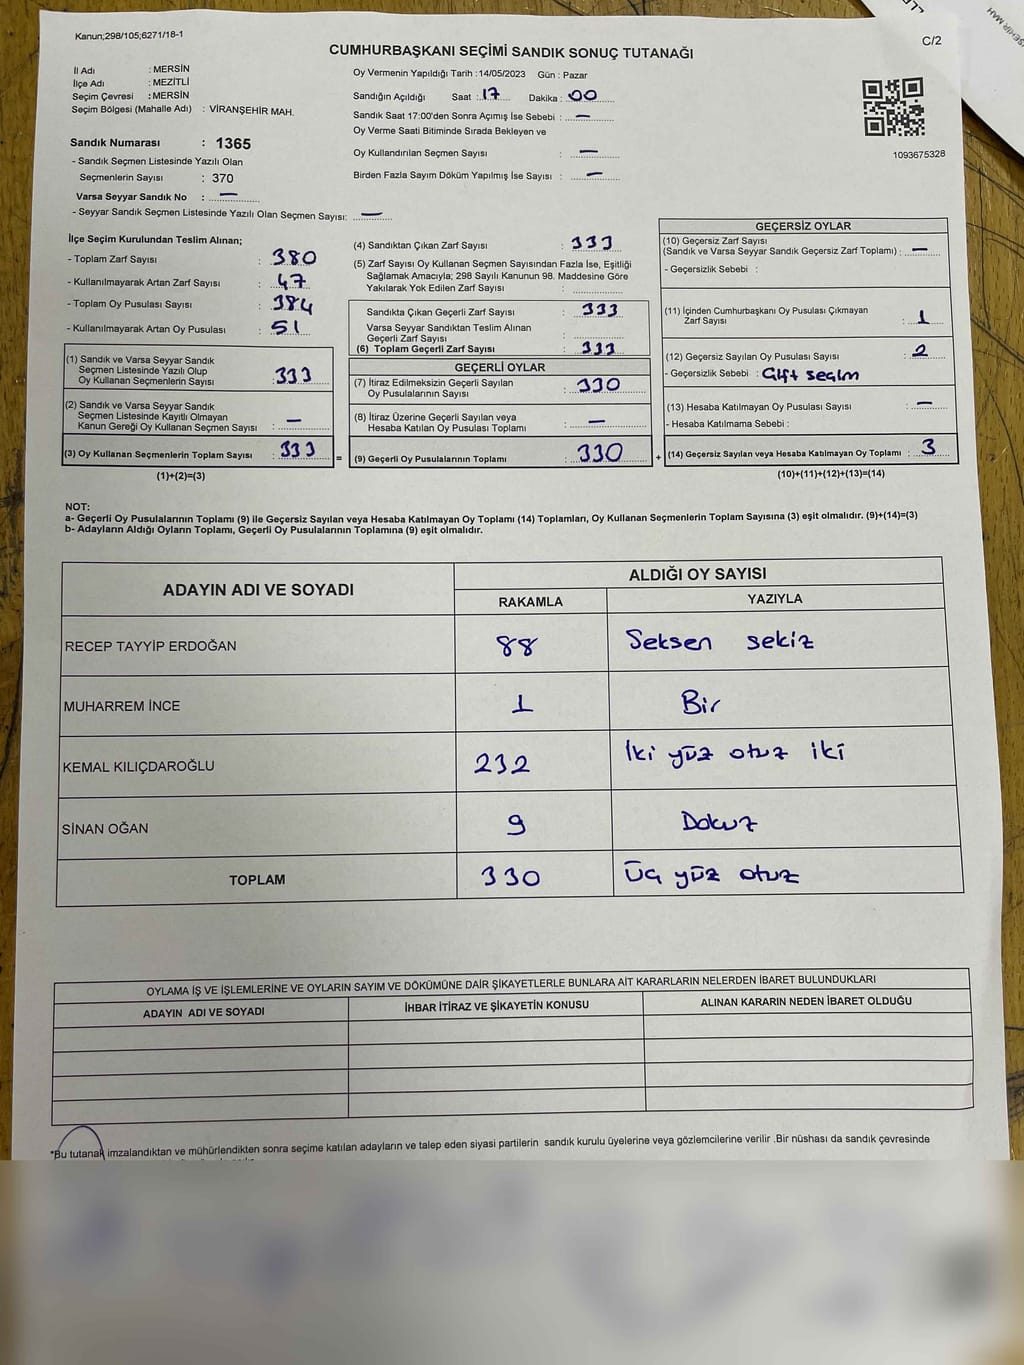 Kanun;298/105;6271/18-1
C/2
CUMHURBAŞKANI SEÇİMİ SANDIK SONUÇ TUTANAĞI
İl Adı : MERSİN
İlçe Adı : MEZİTLİ
Seçim Çevresi : MERSİN
Seçim Bölgesi (Mahalle Adı) : VİRANŞEHİR MAH.
Sandık Numarası : 1365
- Sandık Seçmen Listesinde Yazılı Olan
Seçmenlerin Sayısı : 370
Varsa Seyyar Sandık No : —
- Seyyar Sandık Seçmen Listesinde Yazılı Olan Seçmen Sayısı: —
Oy Vermenin Yapıldığı Tarih :14/05/2023 Gün : Pazar
Sandığın Açıldığı Saat : 17 Dakika : 00
Sandık Saat 17:00'den Sonra Açımış İse Sebebi : —
Oy Verme Saati Bitiminde Sırada Bekleyen ve
Oy Kullandırılan Seçmen Sayısı : —
Birden Fazla Sayım Döküm Yapılmış İse Sayısı : —
1093675328
İlçe Seçim Kurulundan Teslim Alınan;
- Toplam Zarf Sayısı : 380
- Kullanılmayarak Artan Zarf Sayısı : 47
- Toplam Oy Pusulası Sayısı : 384
- Kullanılmayarak Artan Oy Pusulası : 51
(1) Sandık ve Varsa Seyyar Sandık
Seçmen Listesinde Yazılı Olup
Oy Kullanan Seçmenlerin Sayısı : 333
(2) Sandık ve Varsa Seyyar Sandık
Seçmen Listesinde Kayıtlı Olmayan
Kanun Gereği Oy Kullanan Seçmen Sayısı : —
(3) Oy Kullanan Seçmenlerin Toplam Sayısı : 333 =
(1)+(2)=(3)
(4) Sandıktan Çıkan Zarf Sayısı : 333
(5) Zarf Sayısı Oy Kullanan Seçmen Sayısından Fazla İse, Eşitliği
Sağlamak Amacıyla; 298 Sayılı Kanunun 98. Maddesine Göre
Yakılarak Yok Edilen Zarf Sayısı :
Sandıkta Çıkan Geçerli Zarf Sayısı : 333
Varsa Seyyar Sandıktan Teslim Alınan
Geçerli Zarf Sayısı :
(6) Toplam Geçerli Zarf Sayısı : 333
GEÇERLİ OYLAR
(7) İtiraz Edilmeksizin Geçerli Sayılan
Oy Pusulalarının Sayısı : 330
(8) İtiraz Üzerine Geçerli Sayılan veya
Hesaba Katılan Oy Pusulası Toplamı : —
(9) Geçerli Oy Pusulalarının Toplamı : 330 +
GEÇERSİZ OYLAR
(10) Geçersiz Zarf Sayısı
(Sandık ve Varsa Seyyar Sandık Geçersiz Zarf Toplamı) : —
- Geçersizlik Sebebi :
(11) İçinden Cumhurbaşkanı Oy Pusulası Çıkmayan
Zarf Sayısı : 1
(12) Geçersiz Sayılan Oy Pusulası Sayısı : 2
- Geçersizlik Sebebi : Çift seçim
(13) Hesaba Katılmayan Oy Pusulası Sayısı : —
- Hesaba Katılmama Sebebi :
(14) Geçersiz Sayılan veya Hesaba Katılmayan Oy Toplamı : 3
(10)+(11)+(12)+(13)=(14)
NOT:
a- Geçerli Oy Pusulalarının Toplamı (9) ile Geçersiz Sayılan veya Hesaba Katılmayan Oy Toplamı (14) Toplamları, Oy Kullanan Seçmenlerin Toplam Sayısına (3) eşit olmalıdır. (9)+(14)=(3)
b- Adayların Aldığı Oyların Toplamı, Geçerli Oy Pusulalarının Toplamına (9) eşit olmalıdır.
ADAYIN ADI VE SOYADI
ALDIĞI OY SAYISI
RAKAMLA YAZIYLA
RECEP TAYYİP ERDOĞAN 88 Seksen sekiz
MUHARREM İNCE 1 Bir
KEMAL KILIÇDAROĞLU 232 İki yüz otuz iki
SİNAN OĞAN 9 Dokuz
TOPLAM 330 Üç yüz otuz
OYLAMA İŞ VE İŞLEMLERİNE VE OYLARIN SAYIM VE DÖKÜMÜNE DAİR ŞİKAYETLERLE BUNLARA AİT KARARLARIN NELERDEN İBARET BULUNDUKLARI
ADAYIN ADI VE SOYADI İHBAR İTİRAZ VE ŞİKAYETİN KONUSU ALINAN KARARIN NEDEN İBARET OLDUĞU
*Bu tutanak imzalandıktan ve mühürlendikten sonra seçime katılan adayların ve talep eden siyasi partilerin sandık kurulu üyelerine veya gözlemcilerine verilir .Bir nüshası da sandık çevresinde